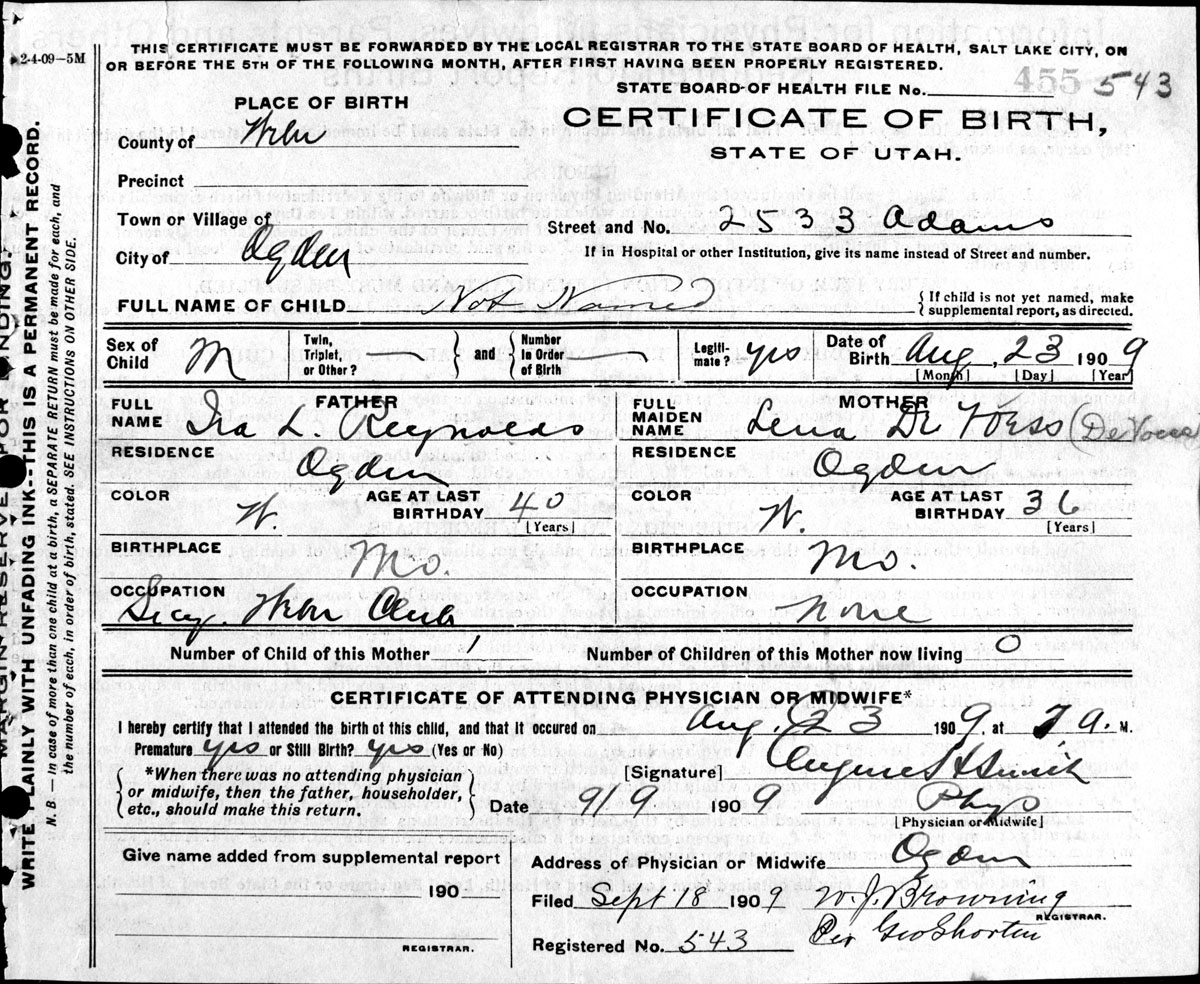 2-4-09-5M
THIS CERTIFICATE MUST BE FORWARDED BY THE LOCAL REGISTRAR TO THE STATE BOARD OF HEALTH, SALT LAKE CITY, ON
OR BEFORE THE 5TH OF THE FOLLOWING MONTH, AFTER FIRST HAVING BEEN PROPERLY REGISTERED.
STATE BOARD OF HEALTH FILE No. 455 543
PLACE OF BIRTH
CERTIFICATE OF BIRTH,
STATE OF UTAH.
County of Weber
Precinct
Town or Village of
City of Ogden
Street and No. 2533 Adams
If in Hospital or other Institution, give its name instead of Street and number.
FULL NAME OF CHILD Not Named
{If child is not yet named, make
supplemental report, as directed.
Sex of Child M
Twin, Triplet, or Other? } and { Number in Order of Birth
Legitimate? yes
Date of Birth Aug, 23 1909
[Month] [Day] [Year]
FATHER
FULL NAME Ira L. Reynolds
RESIDENCE Ogden
COLOR W. AGE AT LAST BIRTHDAY 40
[Years]
BIRTHPLACE Mo.
OCCUPATION Secy. Weber Club
MOTHER
FULL MAIDEN NAME Lena De Voss (DeVoss)
RESIDENCE Ogden
COLOR W. AGE AT LAST BIRTHDAY 36
[Years]
BIRTHPLACE Mo.
OCCUPATION None
Number of Child of this Mother 1 Number of Children of this Mother now living 0
CERTIFICATE OF ATTENDING PHYSICIAN OR MIDWIFE*
I hereby certify that I attended the birth of this child, and that it occured on Aug. 23 1909, at 7 a. M.
Premature yes or Still Birth? yes (Yes or No)
{*When there was no attending physician
or midwife, then the father, householder,
etc., should make this return.}
[Signature]
Date 9/9 1909 Phys
[Physician or Midwife]
Give name added from supplemental report
190
REGISTRAR.
Address of Physician or Midwife Ogden
Filed Sept 18 1909 W. J. Browning
REGISTRAR.
Registered No. 543 Per Geo Shorten
MARGIN RESERVED FOR BINDING.
WRITE PLAINLY WITH UNFADING INK--THIS IS A PERMANENT RECORD.
N. B. — In case of more than one child at a birth, a SEPARATE RETURN must be made for each, and
the number of each, in order of birth, stated. SEE INSTRUCTIONS ON OTHER SIDE.